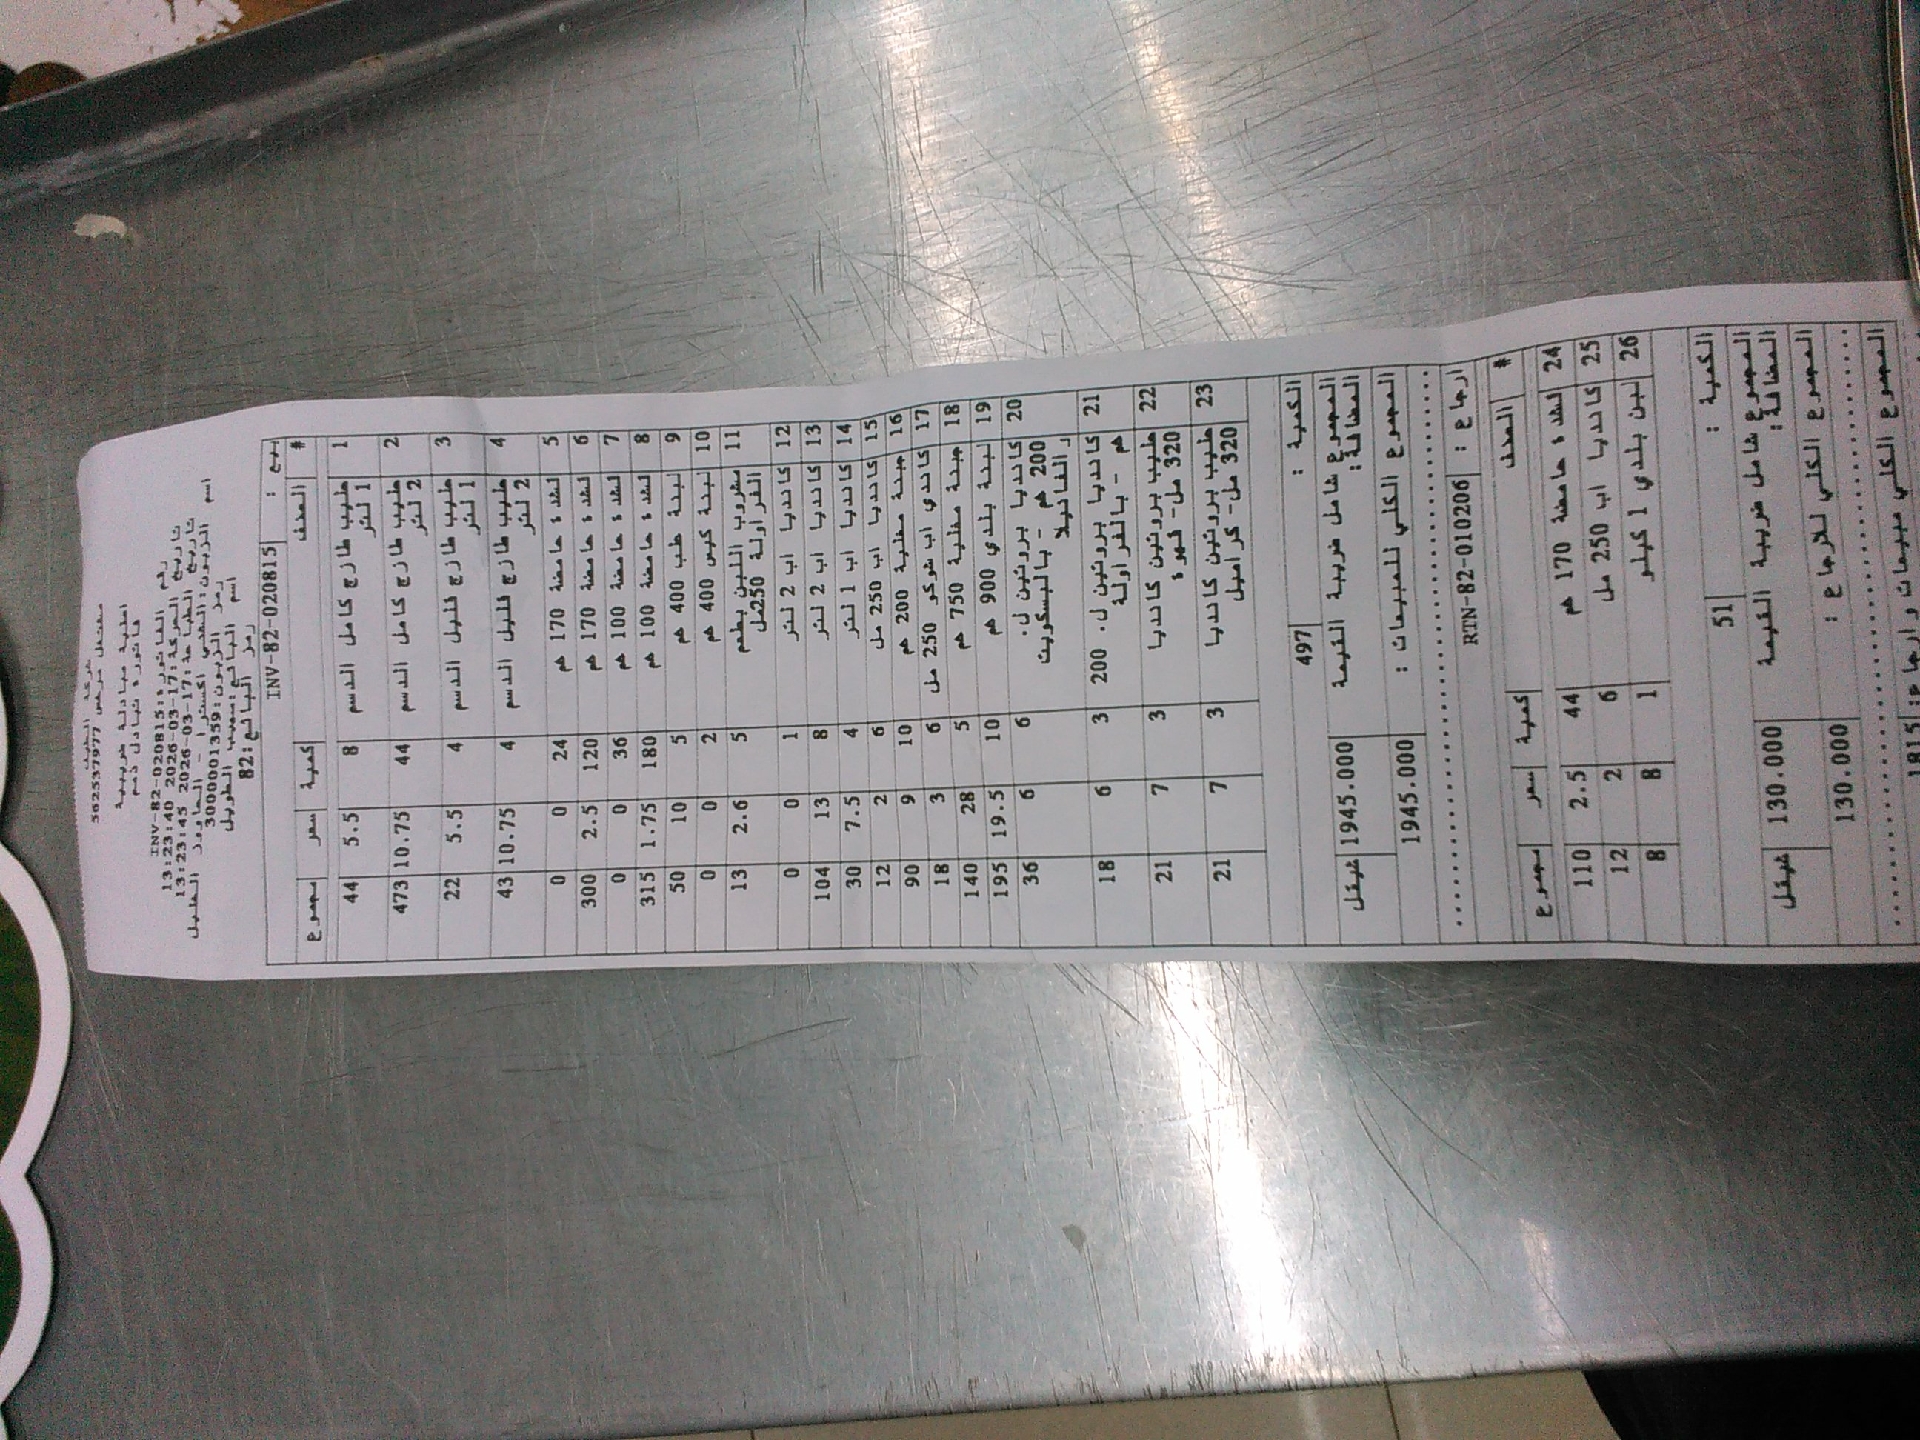 مشتغل مرخص 562537977
اصلية مبادلة ضريبية
فاتورة تبادل ذمم
رقم الفاتورة: INV-82-020815
تاريخ الحركة: 2026-03-17 13:23:40
تاريخ الطباعة: 2026-03-17 13:23:45
رمز الزبون: 3000001359
رمز البائع: 82
بيع : INV-82-020815
# الصنف كمية سعر مجموع
1 حليب طازج كامل الدسم 8 5.5 44
1 لتر
2 حليب طازج كامل الدسم 44 10.75 473
2 لتر
3 حليب طازج قليل الدسم 4 5.5 22
1 لتر
4 حليب طازج قليل الدسم 4 10.75 43
2 لتر
5 قشدة حامضة 170 غم 24 0 0
6 قشدة حامضة 170 غم 120 2.5 300
7 قشدة حامضة 100 غم 36 0 0
8 قشدة حامضة 100 غم 180 1.75 315
9 لبنة علب 400 غم 5 10 50
10 لبنة كيس 400 غم 2 0 0
11 مشروب اللبن بطعم 5 2.6 13
الفراولة 250مل
12 كانديا اب 2 لتر 1 0 0
13 كانديا اب 2 لتر 8 13 104
14 كانديا اب 1 لتر 4 7.5 30
15 كانديا اب 250 مل 6 2 12
16 جبنة مغلية 200 غم 10 9 90
17 كاندي اب شوكو 250 مل 6 3 18
18 جبنة مغلية 750 غم 5 28 140
19 لبنة بلدي 900 غم 10 19.5 195
20 كانديا بروتين ل. 6 6 36
200 غم - بالبسكويت
والفانيلا
21 كانديا بروتين ل. 200 3 6 18
غم - بالفراولة
22 حليب بروتين كانديا 3 7 21
320 مل- قهوة
23 حليب بروتين كانديا 3 7 21
320 مل- كراميل
الكمية : 497
المجموع شامل ضريبة القيمة 1945.000 شيقل
المضافة:
المجموع الكلي للمبيعات : 1945.000
ارجاع : RTN-82-010206
# الصنف كمية سعر مجموع
24 قشدة حامضة 170 غم 44 2.5 110
25 كانديا اب 250 مل 6 2 12
26 لبن بلدي 1 كيلو 1 8 8
الكمية : 51
المجموع شامل ضريبة القيمة 130.000 شيقل
المضافة:
المجموع الكلي للارجاع : 130.000
المجموع الكلي مبيعات وارجاع: 1815